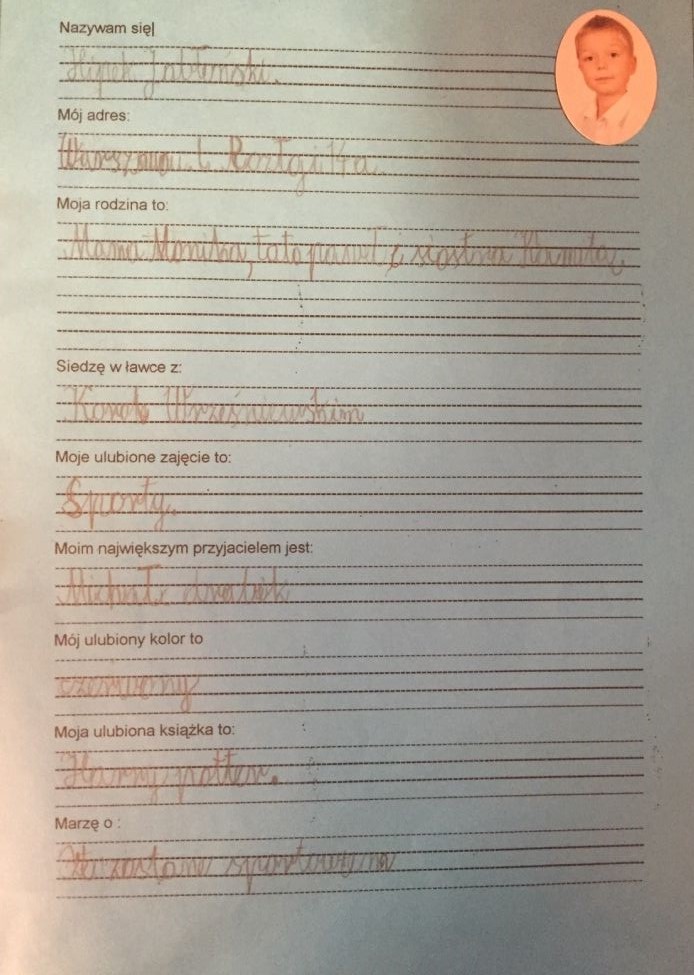 Nazywam się
Hipek Jabłoński.
Mój adres:
Warszawa
Moja rodzina to:
Mama Monika, tata paweł i siostra
Siedzę w ławce z:
Wrześniewskim
Moje ulubione zajęcie to:
Sporty.
Moim największym przyjacielem jest:
Michał
Mój ulubiony kolor to
czerwony
Moja ulubiona książka to:
Harry potter.
Marzę o :
że zostane sportowcem